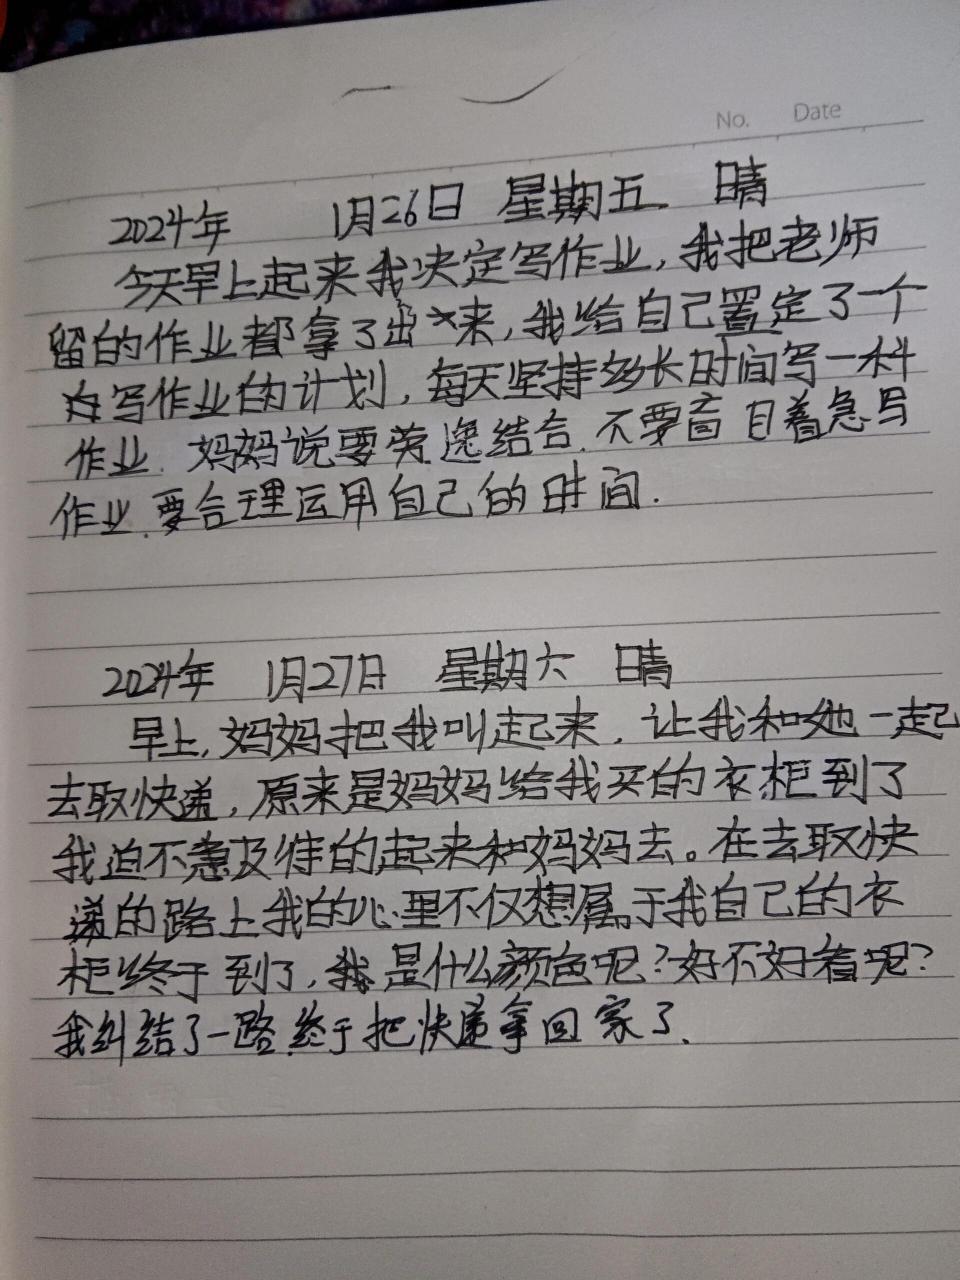 No. Date
2024年 1月26日 星期五 晴
今天早上起来我决定写作业,我把老师
留的作业都拿了出来,我给自己置定了一个
写作业的计划,每天坚持多长时间写一科
作业.妈妈说要劳逸结合.不要盲目着急写
作业.要合理运用自己的时间.
2024年 1月27日 星期六 晴
早上,妈妈把我叫起来.让我和她一起
去取快递,原来是妈妈给我买的衣柜到了
我迫不急及待的起来和妈妈去。在去取快
递的路上我的心里不仅想属于我自己的衣
柜终于到了,我是什么颜色呢?好不好看呢?
我纠结了一路.终于把快递拿回家了.